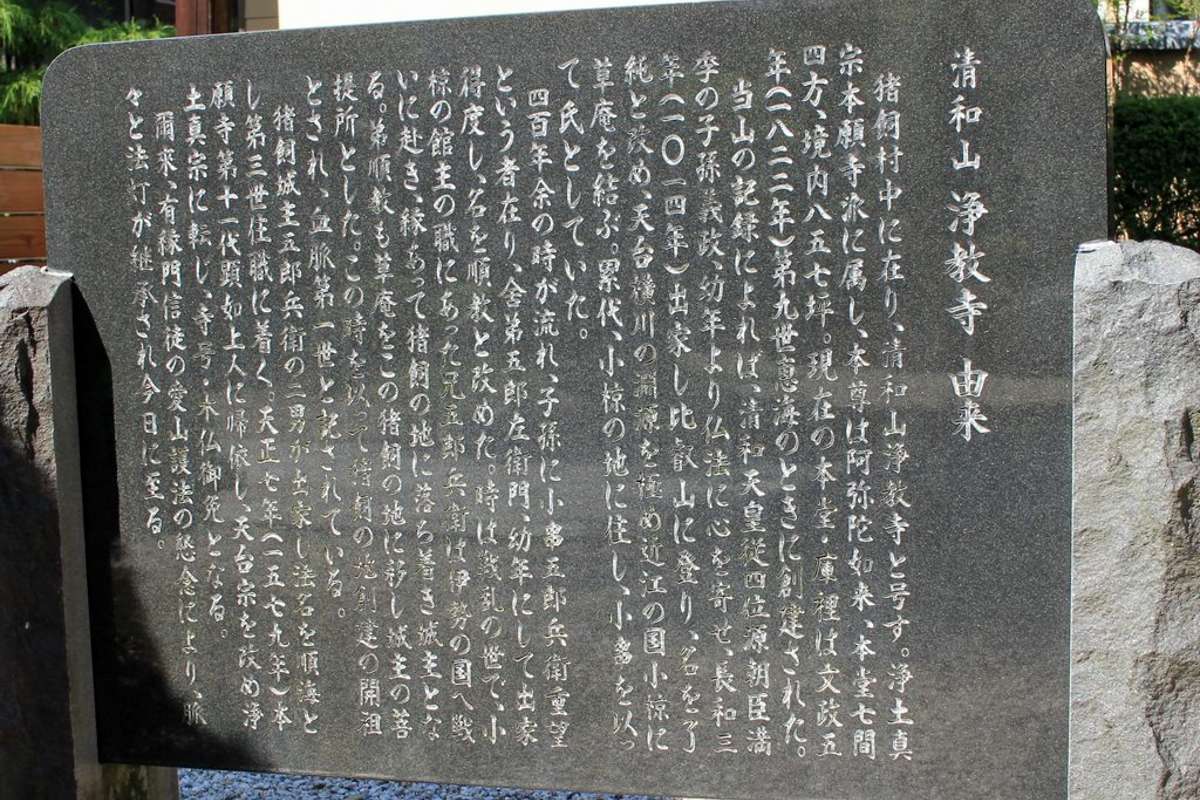 清和山 浄教寺 由来
猪飼村中に在り、清和山浄教寺と号す。浄土真
宗本願寺派に属し、本尊は阿弥陀如来、本堂七間
四方、境内八五七坪。現在の本堂・庫裡は文政五
年(一八二二年)第九世恵海のときに創建された。
当山の記録によれば、清和天皇従四位源朝臣満
季の子孫義政、幼年より仏法に心を寄せ、長和三
年(一〇一四年)出家し比叡山に登り、名を了
純と改め、天台横川の淵源を極め近江の国小椋に
草庵を結ぶ。累代、小椋の地に住し、小を以っ
て氏としていた。
四百年余の時が流れ、子孫に小五郎兵衛重望
という者在り、舎弟五郎左衛門、幼年にして出家
得度し、名を順教と改めた。時は戦乱の世で、小
椋の館主の職にあった兄五郎兵衛は伊勢の国へ戦
いに赴き、縁あって猪飼の地に落ち着き城主とな
る。弟順教も草庵をこの猪飼の地に移し城主の菩
提所とした。この時を以って猪飼の地創建の開祖
とされ、血脈第一世と記されている。
猪飼城主五郎兵衛の二男が出家し法名を順海と
し第三世住職に着く。天正七年(一五七九年)本
願寺第十一代顕如上人に帰依し、天台宗を改め浄
土真宗に転じ、寺号・木仏御免となる。
爾来、有縁門信徒の愛山護法の懇念により、脈
々と法灯が継承され今日に至る。